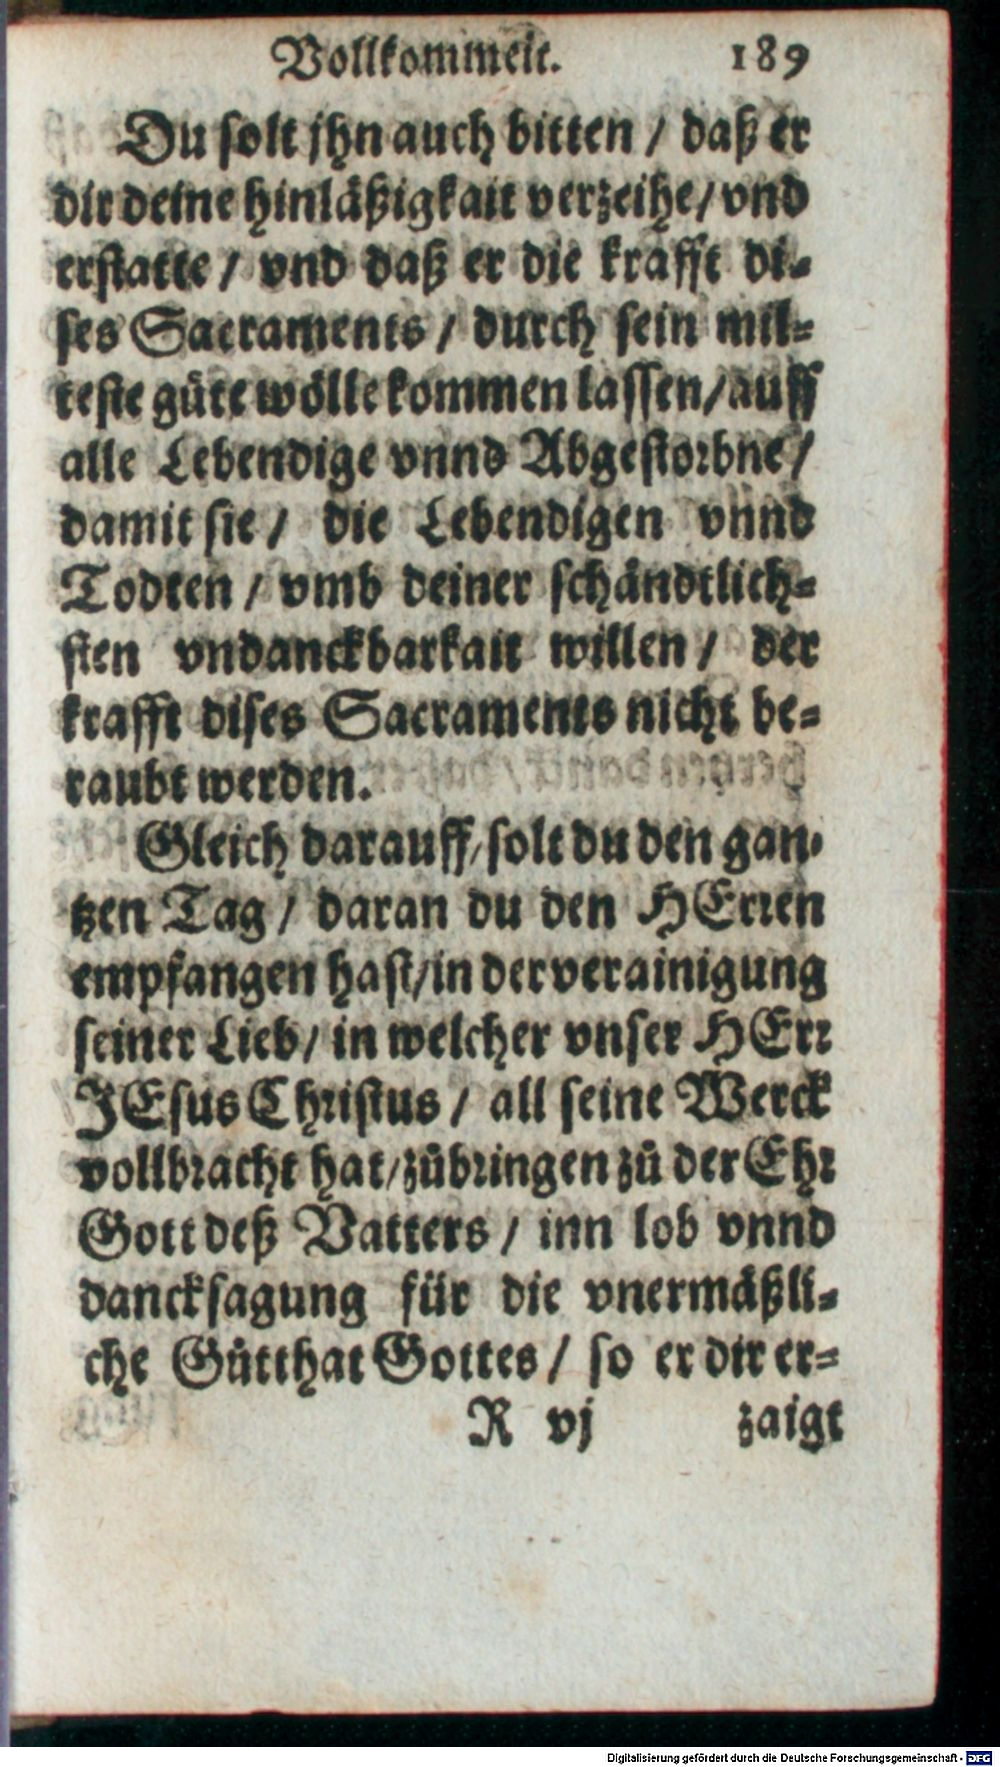 Vollkommeit. 189
Du solt jhn auch bitten / daß er
dir deine hinläßigkait verzeihe / vnd
erstatte / vnd daß er die krafft di-
ses Sacraments / durch sein mil-
teste güte wölle kommen lassen / auff
alle Lebendige vnnd Abgestorbne /
damit sie / die Lebendigen vnnd
Todten / vmb deiner schändtlich-
sten vndanckbarkait willen / der
krafft dises Sacraments nicht be-
raubt werden.
Gleich darauff / solt du den gan-
tzen Tag / daran du den HErren
empfangen hast / in der verainigung
seiner Lieb / in welcher vnser HErr
JEsus Christus / all seine Werck
vollbracht hat / zůbringen zů der Ehr
Gott deß Vatters / inn lob vnnd
dancksagung für die vnermäßli-
che Gůtthat Gottes / so er dir er-
R vj zaigt
Digitalisierung gefördert durch die Deutsche Forschungsgemeinschaft - DFG